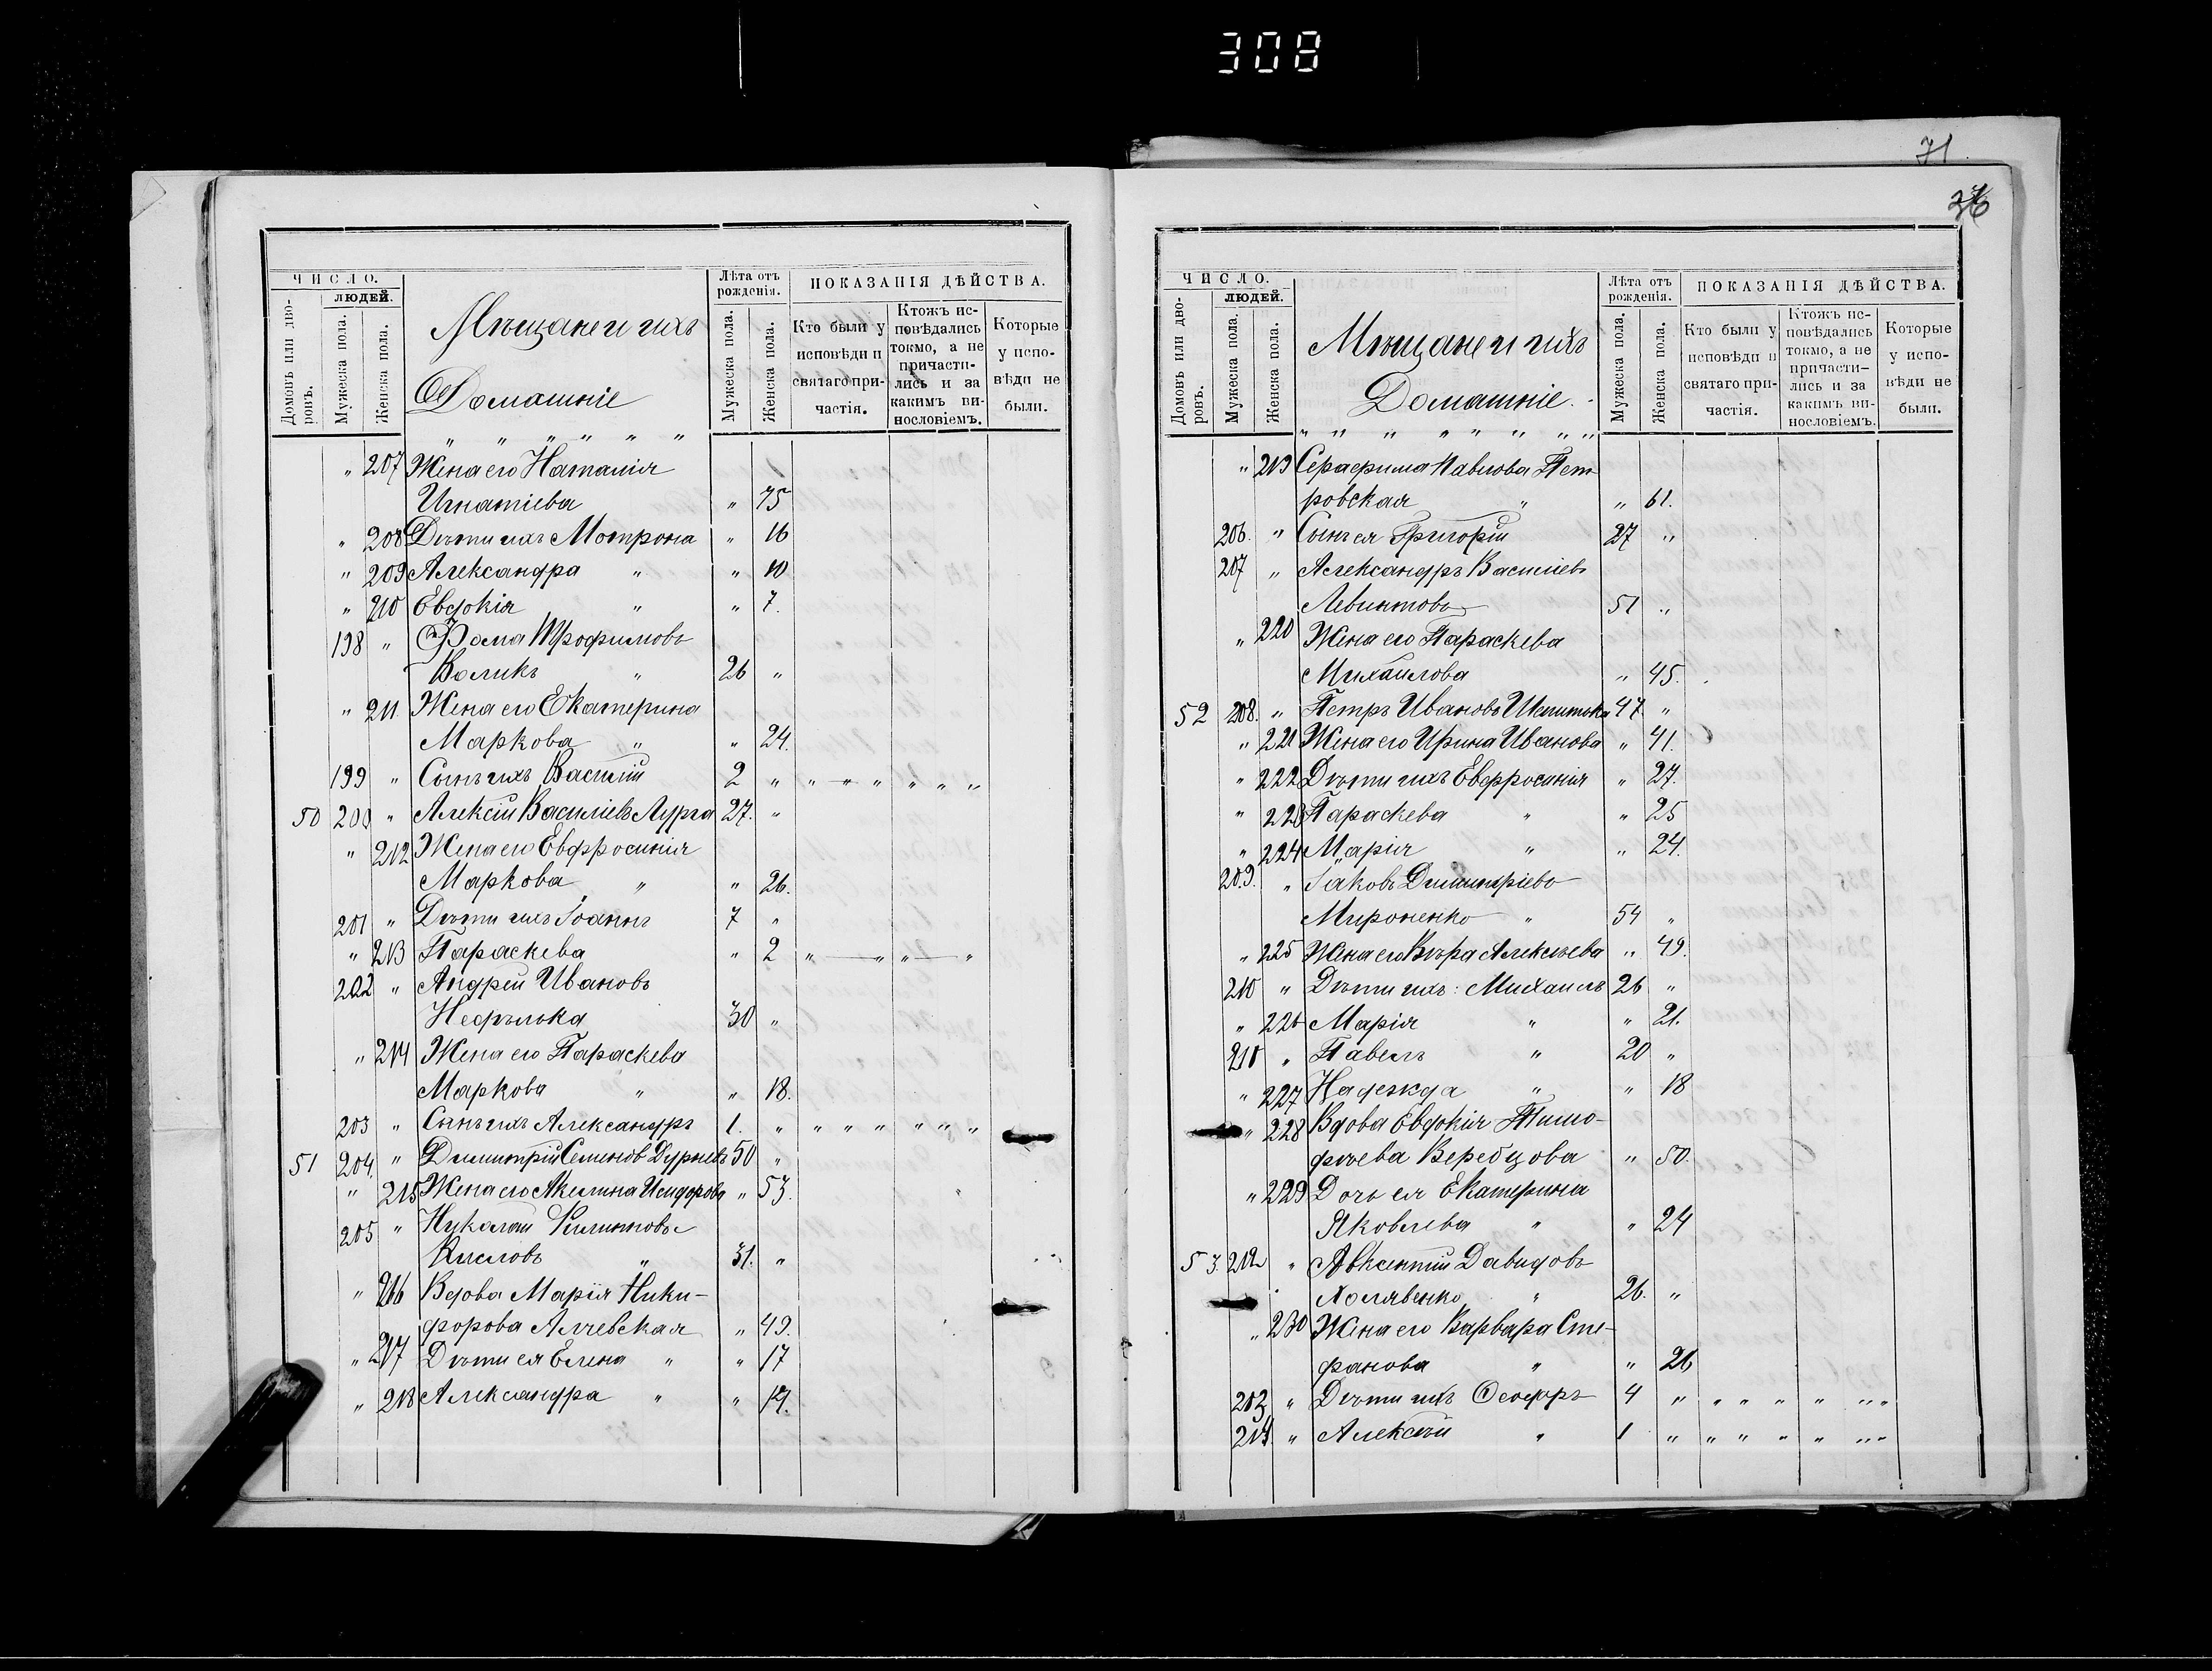 308
ЧИСЛО.
ЛЮДЕЙ.
Домовъ или дворовъ.
Мужеска пола.
Женска пола.
Мѣщане и ихъ
Домашніе
Лѣта отъ рожденія.
Мужеска пола.
Женска пола.
ПОКАЗАНІЯ ДѢЙСТВА.
Кто были у исповѣди и святаго причастія.
Ктожъ исповѣдались токмо, а не причастились и за какимъ винословіемъ.
Которые у исповѣди не были.
" " " " " "
" 207 Жена его Наталія
Игнатіева " 75
" 208 Дѣти ихъ Мотрона " 16
" 209 Александра " " 10
" 210 Евдокія " " 7.
198 " Фома Трофимовъ
Воликъ " 26 "
" 211. Жена его Екатерина
Маркова " " 24.
199 " Сынъ ихъ Василій 2 " " " " " " "
50 200 " Алексій Василіевъ Лурга 27. "
" 212 Жена его Евфросинія
Маркова " " 26.
201 " Дѣти ихъ Іоаннъ 7 "
" 213 Параскева " 2 " " " "
202 " Андрей Ивановъ
Недѣлька 30 "
" 214 Жена его Параскева
Маркова " " 18.
203 " Сынъ ихъ Александръ 1. " " " " " " "
51 204. " Димитрій Семеновъ Дурневъ 50 "
" 215 Жена его Акилина Исидорова " 53.
205 " Николай Филипповъ
Кисловъ " 31. "
" 216 Вдова Марія Ники-
форова Алчевская " 49.
" 217 Дѣти ея Елена " " 17
" 218 Александра " " 14.
71
36
ЧИСЛО.
ЛЮДЕЙ.
Домовъ или дворовъ.
Мужеска пола.
Женска пола.
Мѣщане и ихъ
Домашніе.
Лѣта отъ рожденія.
Мужеска пола.
Женска пола.
ПОКАЗАНІЯ ДѢЙСТВА.
Кто были у исповѣди и святаго причастія.
Ктожъ исповѣдались токмо, а не причастились и за какимъ винословіемъ.
Которые у исповѣди не были.
" " " " " " " "
" 219 Серафима Павлова Пет-
ровская " " 61.
206. " Сынъ ея Григорій 27 "
207 " Александръ Василіевъ
Левинтовъ 51 "
" 220 Жена его Параскева
Михаилова " 45.
52 208. " Петръ Ивановъ Шепитька 47 "
" 221 Жена его Ирина Иванова " 41.
" 222 Дѣти ихъ Евфросинія " 27.
" 223 Параскева " " 25
" 224 Марія " " 24.
209. " Іаковъ Димитріевъ
Мироненко " 54 "
" 225 Жена его Вѣра Алексѣева " 49.
210 " Дѣти ихъ: Михаилъ 26 "
" 226 Марія " " 21.
210 " Павелъ " 20 "
" 227 Надежда " " 18
" 228 Вдова Евдокія Тимо-
фѣева Веребцова " 50.
" 229 Дочь ея Екатерина
Яковлева " " 24
53. 212 " Авксентій Давидовъ
Холявенко " 26. "
" 230 Жена его Варвара Сте-
фанова " " 26
213 " Дѣти ихъ Ѳеодоръ 4 " " " " " " "
214 " Алексѣй " 1 " " " " " " "